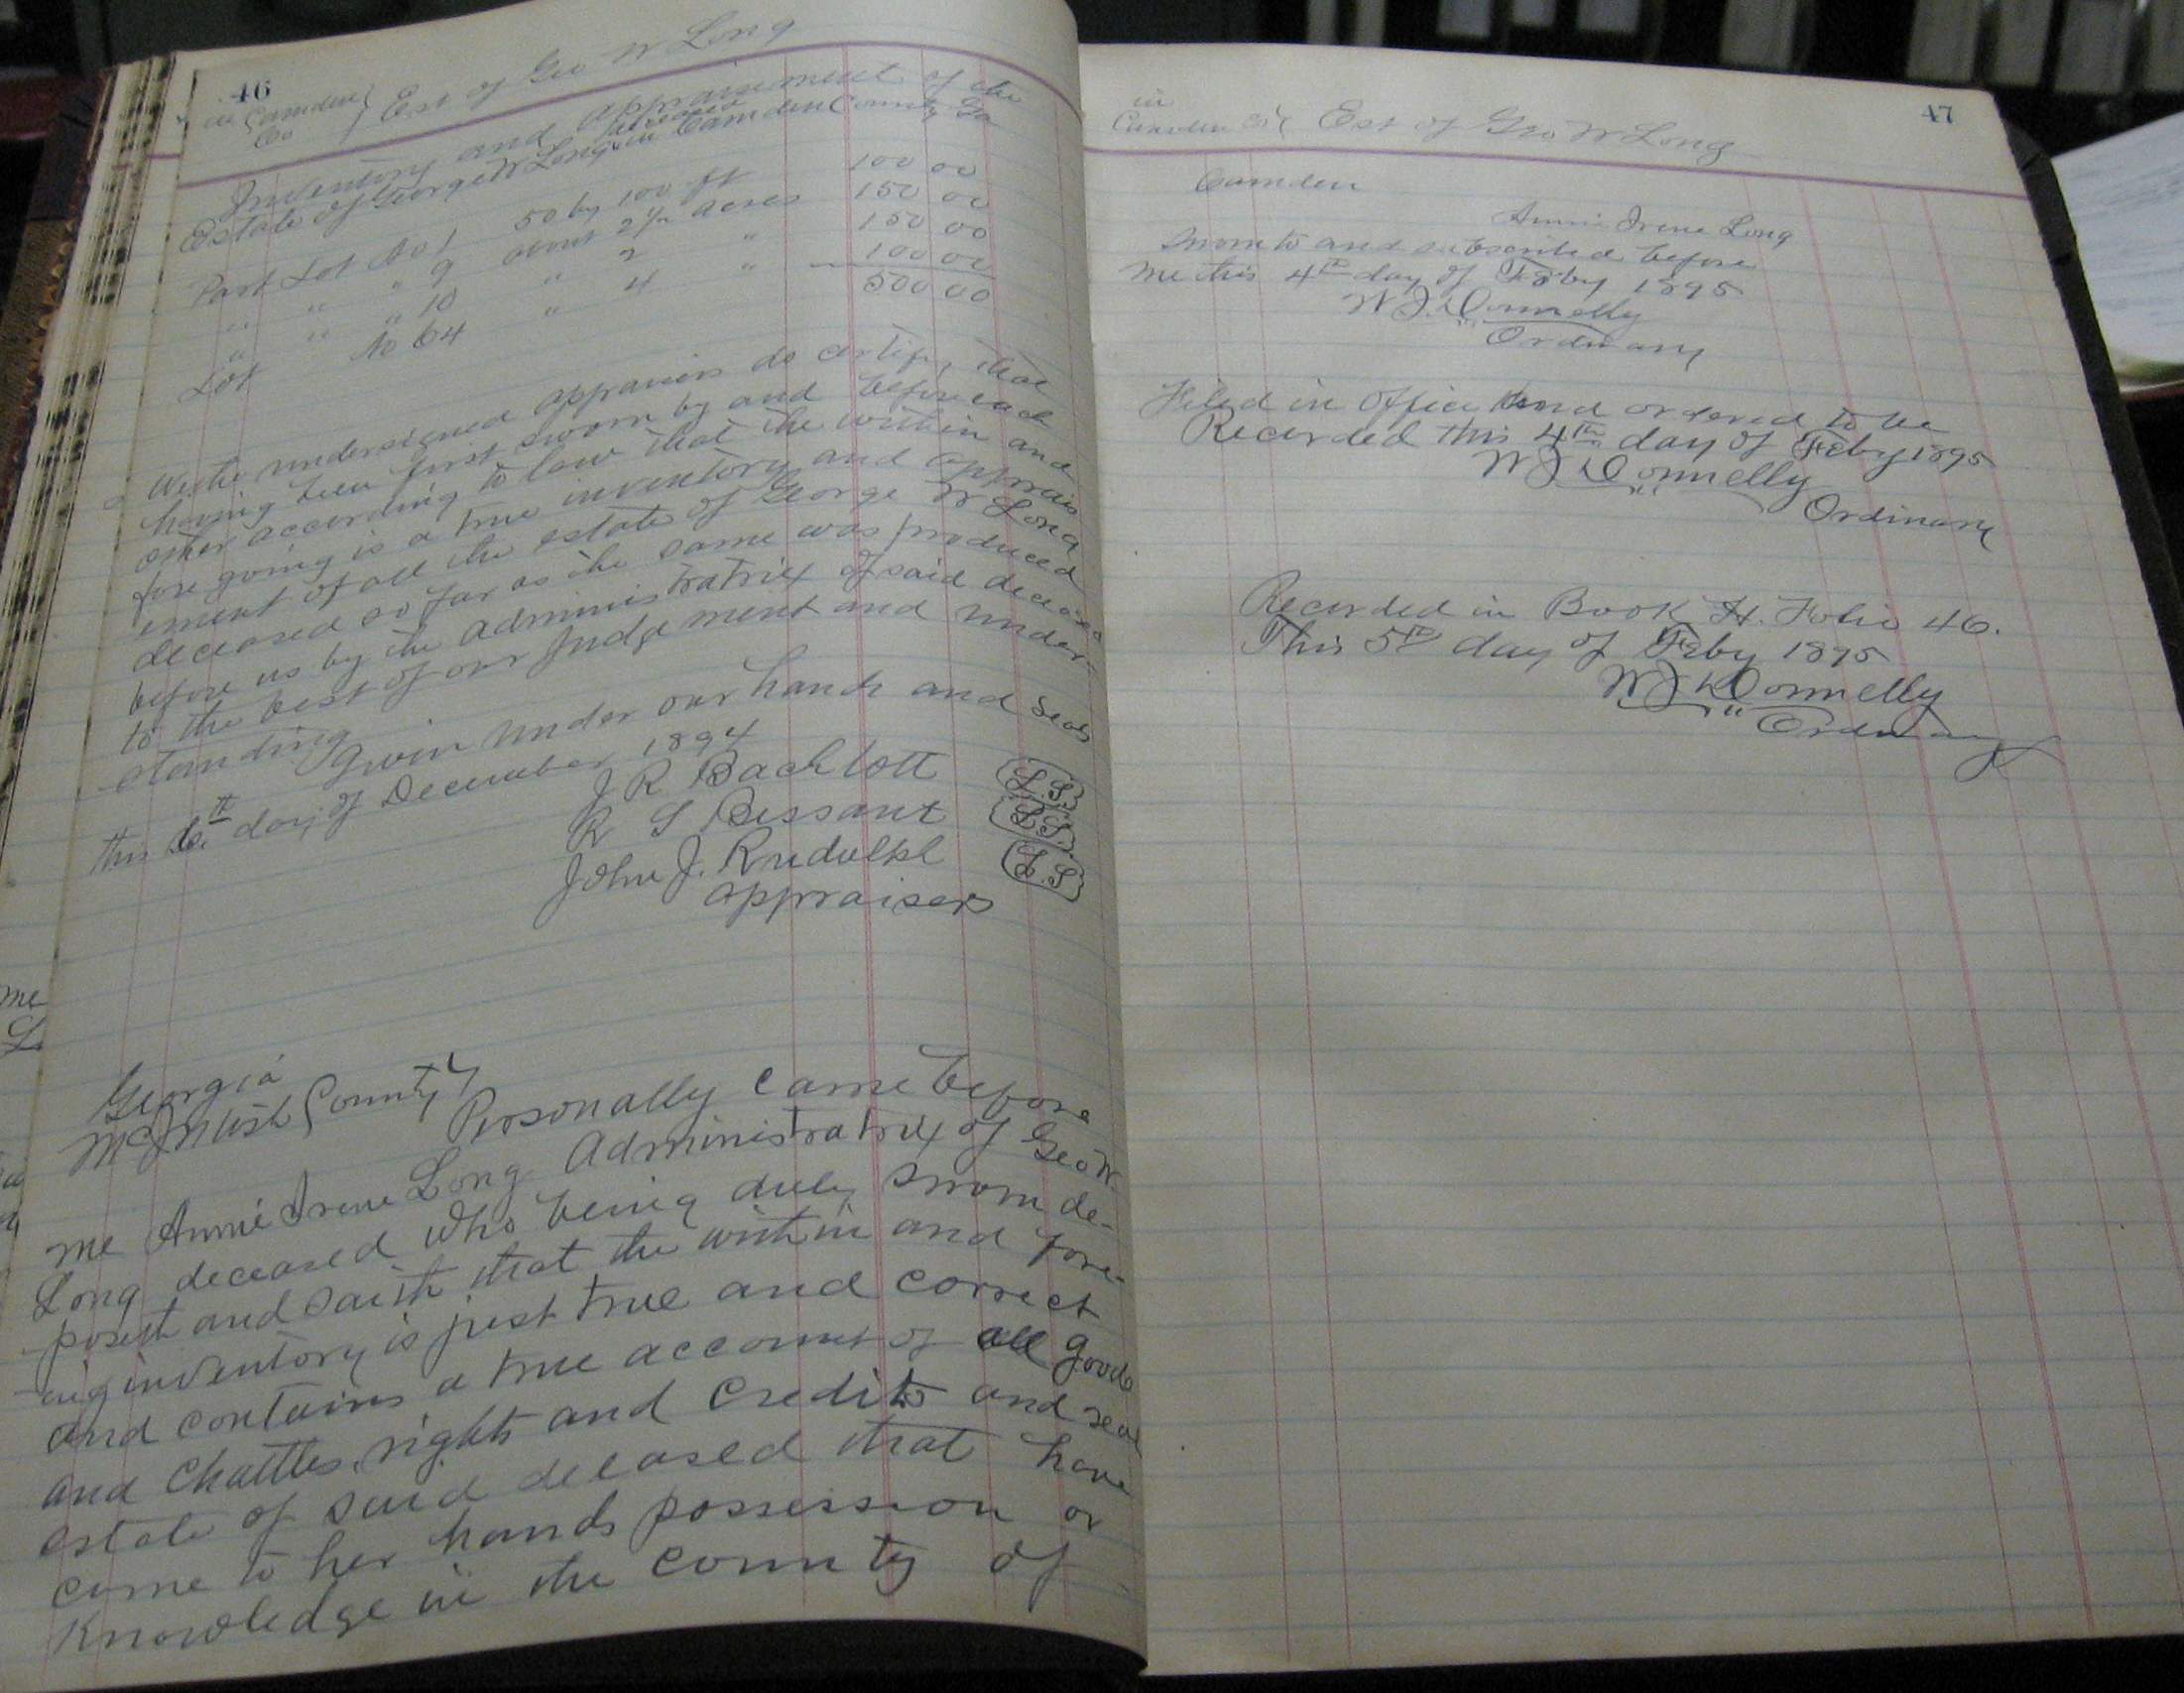 46
in Camden Co } Est of Geo W Long
Inventory and appraisement of the
Estate of George W Long deceased in Camden County Ga
Part Lot No 1 50 by 100 ft 100 00
" " " 9 about 2 1/2 acres 150 00
" " " 10 " 2 " 150 00
Lot No 64 " 4 " 100 00
500 00
We the undersigned appraisers do certify that
having been first sworn by and before each
other according to law that the within and
fore going is a true inventory and apprais
ement of all the estate of George W Long
deceased so far as the same was produced
before us by the administratrix of said deceased
to the best of our Judgement and under-
standing
Given under our hands and seals
this 6th day of December 1894
J R Bachlott (L.S.)
R S Bessant (L.S.)
John J. Rudulph (L.S)
appraisers
Georgia
McIntosh County }
Personally came before
me Annie Irene Long Administratrix of Geo W
Long deceased who being duly sworn de-
poseth and saith that the within and fore-
-ing inventory is just true and correct
and contains a true account of all goods
and Chattles, rights and Credits and real
estate of said deceased that have
come to her hands possession or
Knowledge in the county of
me
L
47
in Camden Co { Est of Geo W Long
Camden
Annie Irene Long
Sworn to and subscribed before
me this 4th day of Feby 1895
W J. Donnelly
Ordinary
Filed in office and ordered to be
Recorded this 4th day of Feby 1895
W J Donnelly
Ordinary
Recorded in Book H. Folio 46.
This 5th day of Feby 1895
W J Donnelly
Ordinary